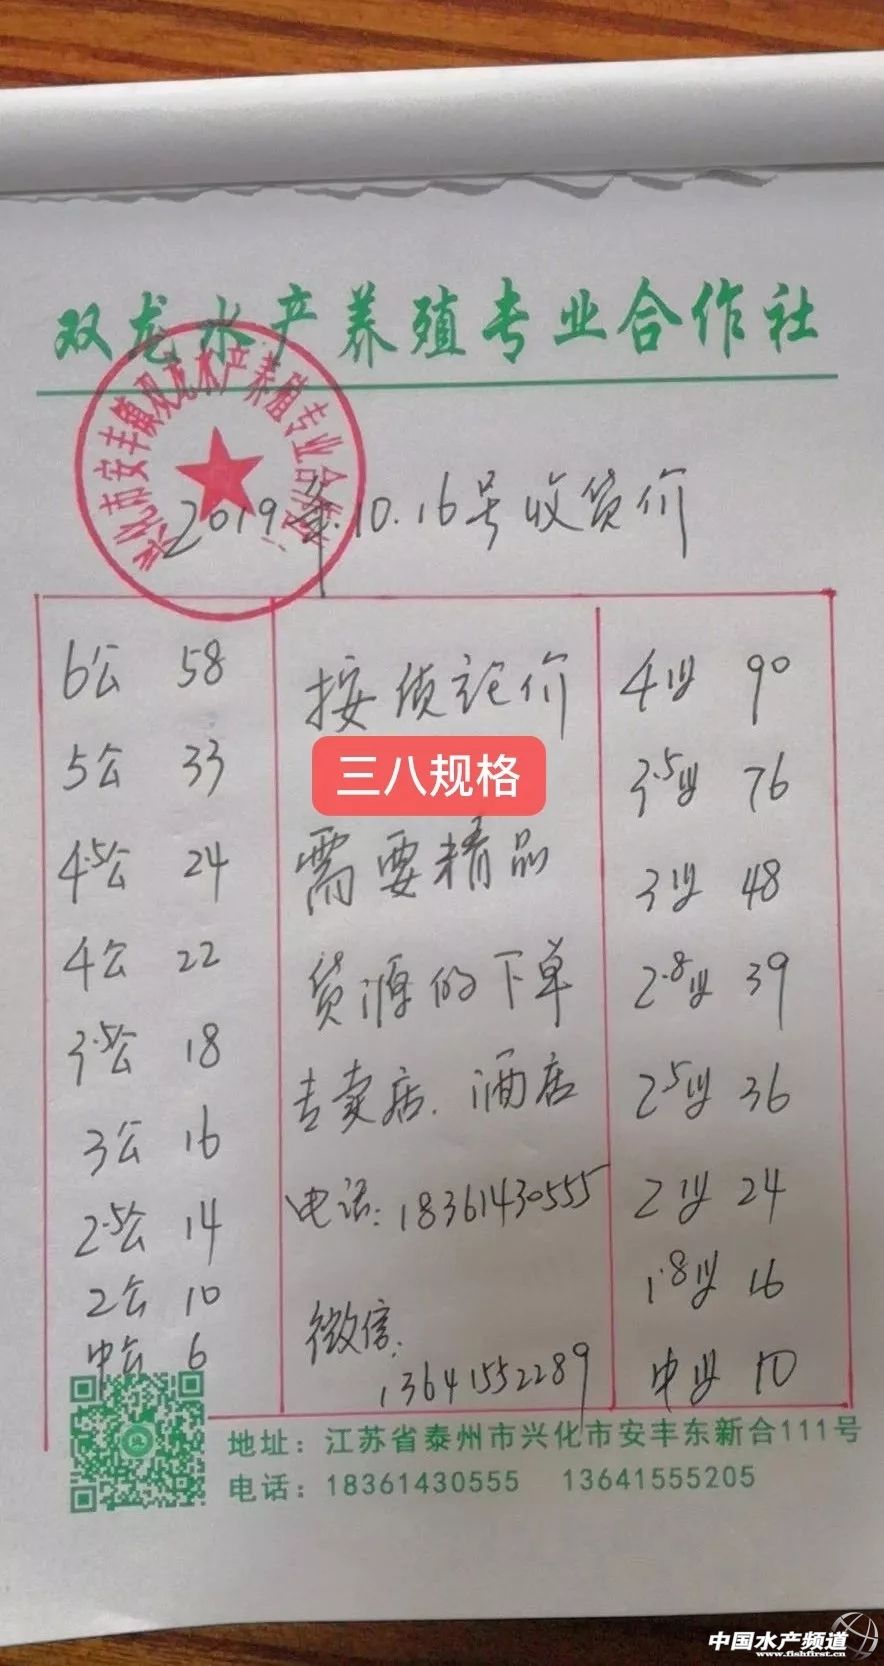 双龙水产养殖专业合作社
兴化市安丰镇双龙水产养殖专业合作社
2019年.10.16号收货价
6公 58
5公 33
4.5公 24
4公 22
3.5公 18
3公 16
2.5公 14
2公 10
中公 6
按质论价
三八规格
需要精品
货源的下单
专卖店、酒店
电话:18361430555
微信:
13641552289
4母 90
3.5母 76
3母 48
2.8母 39
2.5母 36
2母 24
1.8母 16
中母 10
地址：江苏省泰州市兴化市安丰东新合111号
电话：18361430555 13641555205
中国水产频道
www.fishfirst.cn